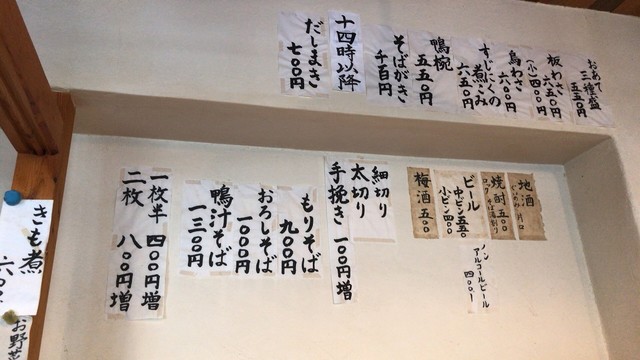 おあて
三種盛
五五〇円
板わさ
六五〇円
(小)四〇〇円
鳥わさ
六〇〇円
すじにくの
煮こみ
六五〇円
鴨椀
五五〇円
そばがき
千百円
十四時以降
だしまき
七〇〇円
地酒
片口
焼酎五〇〇
ビール
中ビン五五〇
小ビン四〇〇
ノン
アルコールビール
四〇〇
梅酒 五〇〇
細切り
太切り
手挽き 一〇〇円増
もりそば
九〇〇円
おろしそば
一〇〇〇円
鴨汁そば
一三〇〇円
一枚半 四〇〇円増
二枚 八〇〇円増
きも煮
六〇
お野菜